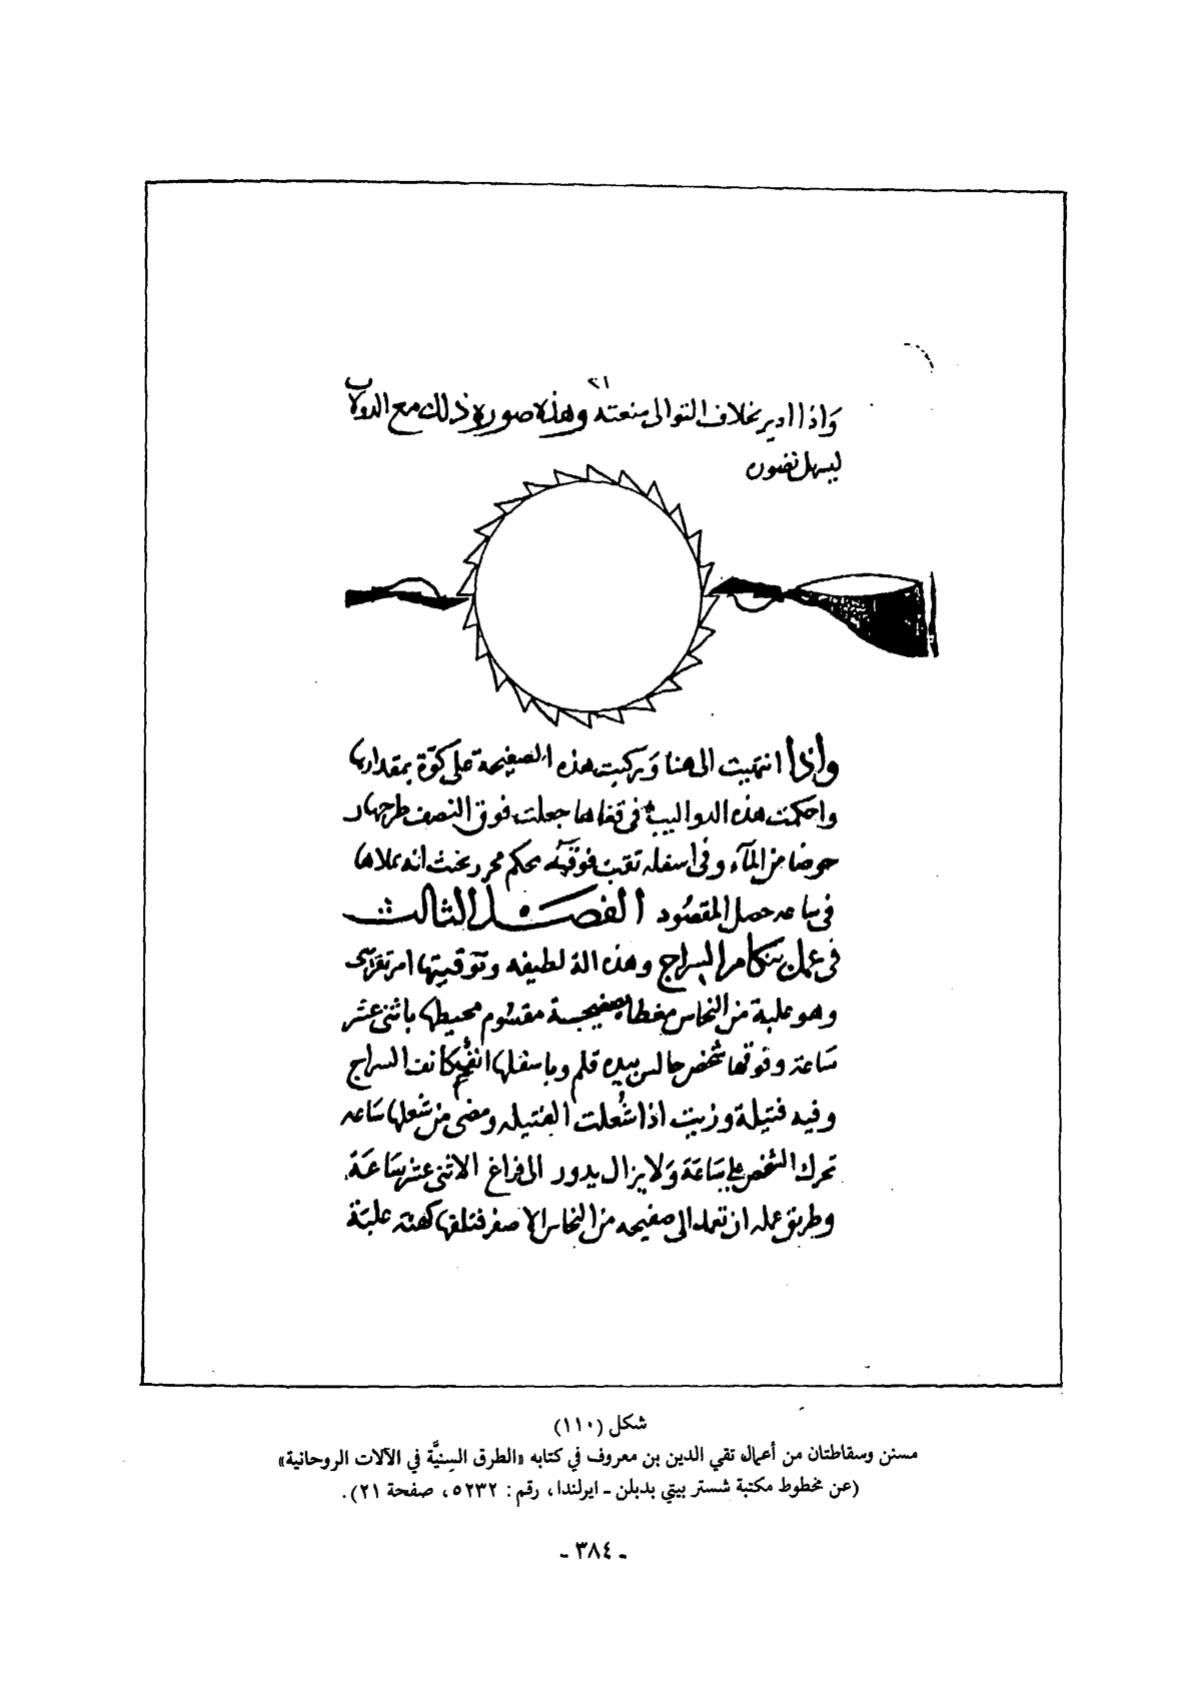 ٢١
واذا ادير بخلاف التوالى منعته وهذه صورة ذلك مع الدولاب
ليسهل تصوره
واذا انتهيت الى هنا وركبت هذه الصفيحة على كوة بمقدارها
واحكمت هذه الدواليب فى قفاها جعلت فوق النصف طرجهار
حوضا من المآء وفى اسفله ثقب محكم محرر بحيث انه يملاها
فى ساعه حصل المقصود الفصل الثالث
فى عمل بنكام السراج وهذه الة لطيفه وتوقيتها امر تقريبى
وهو علبة من النحاس مغطاه بصفيحة مقسوم محيطها باثنى عشر
ساعة وفوقها شخص جالس بيده قلم وباسفلها انف كانف السراج
وفيه فتيلة وزيت اذا شعلت الفتيله ومضى من شعلها ساعه
تحرك الشخص على ساعة ولا يزال يدور الى فراغ الاثنى عشر ساعة
وطريق عمله ان تعمد الى صفيحه من النحاس الاصفر فتلفها كهئة علبة
شكل (١١٠)
مسنن وسقاطتان من أعمال تقي الدين بن معروف في كتابه «الطرق السنِيَّة في الآلات الروحانية»
(عن مخطوط مكتبة شستر بيتي بدبلن ـ ايرلندا، رقم: ٥٢٣٢، صفحة ٢١).
ـ ٣٨٤ ـ